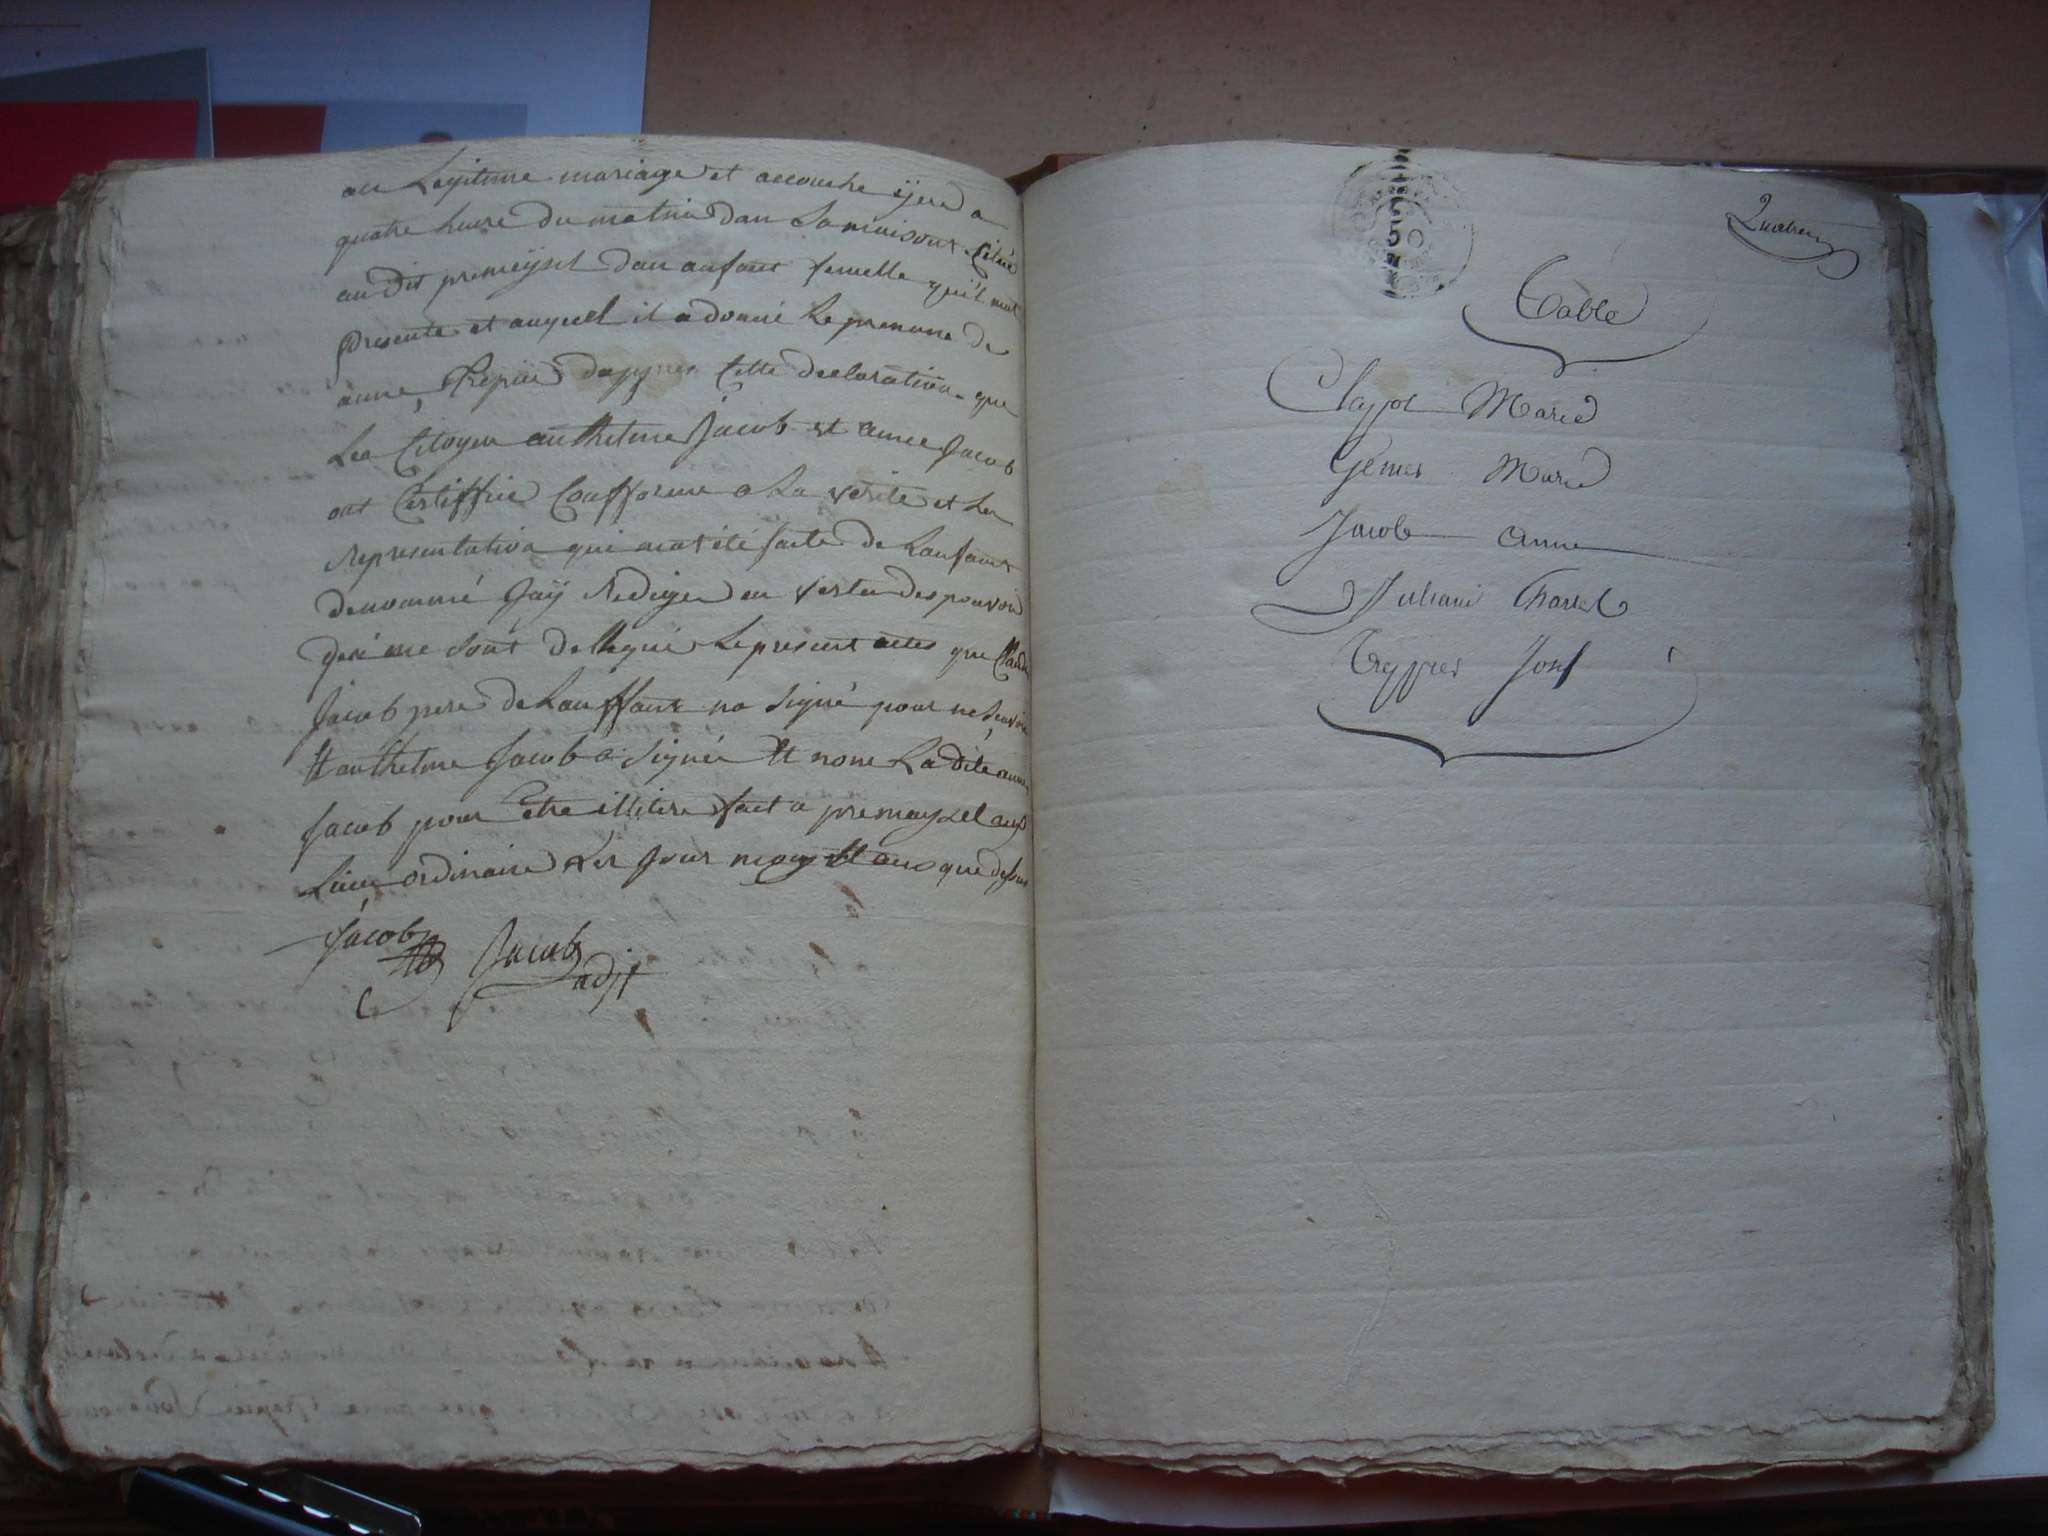 en Legitime mariage et accouche yjere a
quatre heure du matin dan La maison Citué
au dit premeysel dun anfant femelle quil mat
presente et auquel il a donné Le prenome de
anne, Crepier dapprer Cette declaration que
Les Citoyen anthelme Jacob et anne Jacob
ont Certiffiée Confforme a La verité et La
representation qui mat été faite de Lanfant
denommé Jaÿ Rediger en vertu des pouvoir
qui me sont dellegué Le present actes que Claude
Jacob pere de Lanffant na Signé pour ne Savoir
Et anthelme Jacob a Signée Et nont La dite anne
Jacob pour Etre illitire fait a premaysel aux
Lieux ordinaire Les Jour moy Et an que dessus
Jacob Jacob
adjt
50
Table
Clappot Marie
Gemes Marie
Jacob anne
Julliani Charle
Treppier Josf